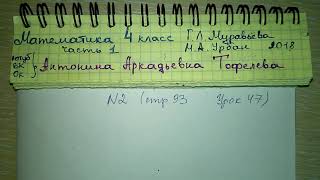 Математика 4 класс Г.Л. Муравьёва
часть 1 М.А. Урбан 2018
ютуб
ВК
Ок } Антонина Аркадьевна Тофелева
N2 (стр 93 Урок 47)